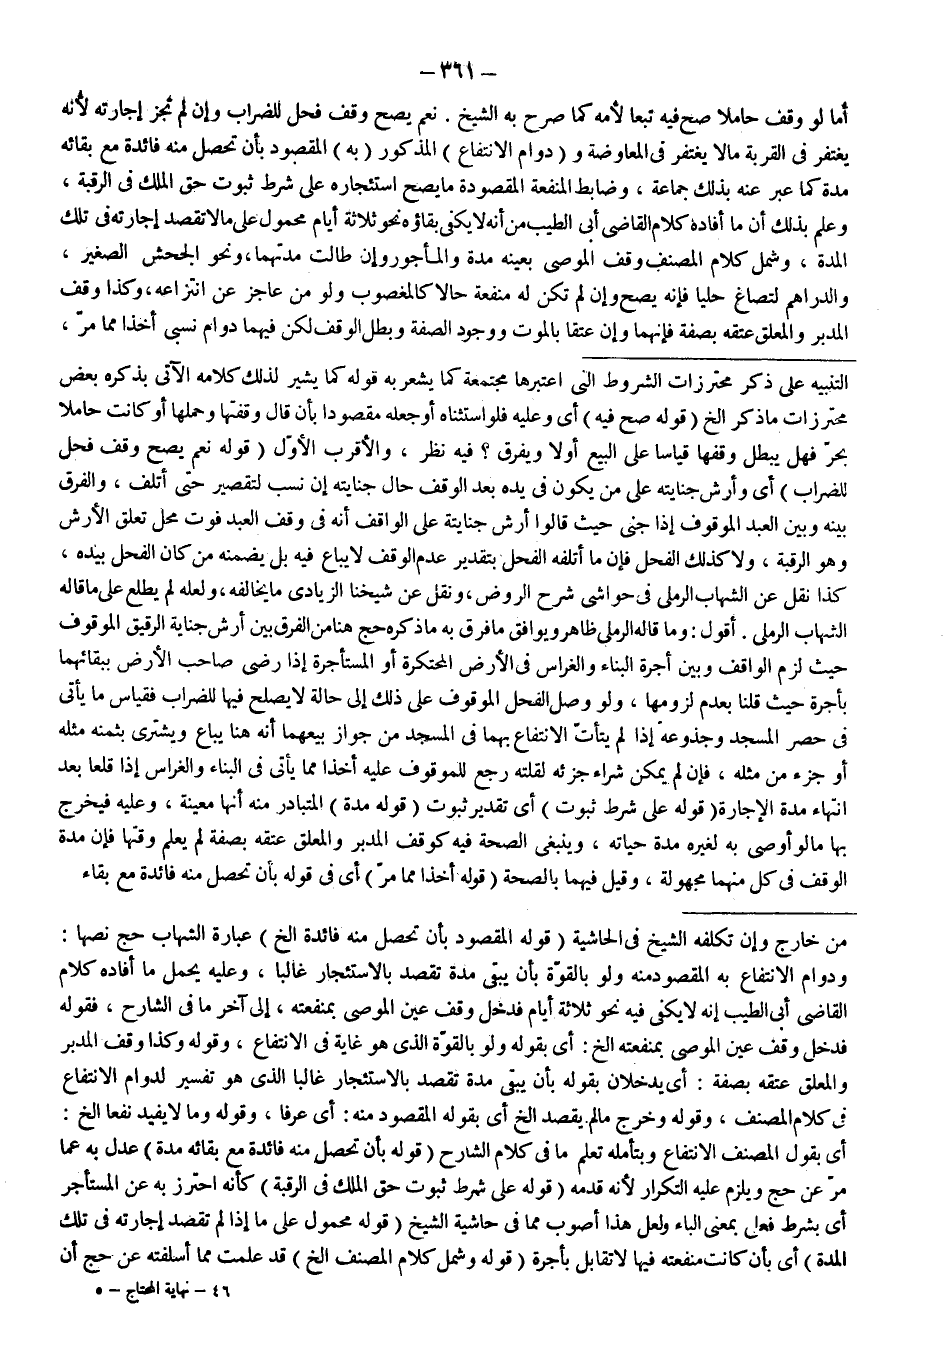 – ٣٦١ –
أما لو وقف حاملا صح فيه تبعا لأمه كما صرح به الشيخ . نعم يصح وقف فحل للضراب وإن لم تجز إجارته لأنه
يغتفر فى القربة مالا يغتفر فى المعاوضة و ( دوام الانتفاع ) المذكور ( به ) المقصود بأن تحصل منه فائدة مع بقائه
مدة كما عبر عنه بذلك جماعة ، وضابط المنفعة المقصودة مايصح استئجاره على شرط ثبوت حق الملك فى الرقبة ،
وعلم بذلك أن ما أفاده كلام القاضى أبى الطيب من أنه لايكفى بقاؤه نحو ثلاثة أيام محمول على مالاتقصد إجارته فى تلك
المدة ، وشمل كلام المصنف وقف الموصى بعينه مدة والمأجور وإن طالت مدتهما،ونحو الجحش الصغير ،
والدراهم لتصاغ حليا فإنه يصح وإن لم تكن له منفعة حالا كالمغصوب ولو من عاجز عن انتزاعه،وكذا وقف
المدبر والمعلق عتقه بصفة فإنهما وإن عتقا بالموت ووجود الصفة وبطل الوقف لكن فيهما دوام نسبى أخذا مما مرّ ،
التنبيه على ذكر محترزات الشروط التى اعتبرها مجتمعة كما يشعر به قوله كما يشير لذلك كلامه الآتى بذكره بعض
محترزات ماذكر الخ ( قوله صح فيه ) أى وعليه فلو استثناه أو جعله مقصودا بأن قال وقفتها وحملها أو كانت حاملا
بحرّ فهل يبطل وقفها قياسا على البيع أولا ويفرق ؟ فيه نظر ، والأقرب الأوّل ( قوله نعم يصح وقف فحل
للضراب ) أى وأرش جنايته على من يكون فى يده بعد الوقف حال جنايته إن نسب لتقصير حتى أتلف ، والفرق
بينه وبين العبد الموقوف إذا جنى حيث قالوا أرش جناية على الواقف أنه فى وقف العبد فوت محل تعلق الأرش
وهو الرقبة ، ولاكذلك الفحل فإن ما أتلفه الفحل بتقدير عدم الوقف لايباع فيه بل يضمنه من كان الفحل بيده ،
كذا نقل عن الشهاب الرملى فى حواشى شرح الروض،ونقل عن شيخنا الزيادى مايخالفه،ولعله لم يطلع على ماقاله
الشهاب الرملى . أقول : وما قاله الرملى ظاهر ويوافق مافرق به ماذكره حج هنا من الفرق بين أرش جناية الرقيق الموقوف
حيث لزم الواقف وبين أجرة البناء والغراس فى الأرض المحتكرة أو المستأجرة إذا رضى صاحب الأرض ببقائهما
بأجرة حيث قلنا بعدم لزومها ، ولو وصل الفحل الموقوف على ذلك إلى حالة لايصلح فيها للضراب فقياس ما يأتى
فى حصر المسجد وجذوعه إذا لم يتأتّ الانتفاع بهما فى المسجد من جواز بيعهما أنه هنا يباع ويشترى بثمنه مثله
أو جزء من مثله ، فإن لم يمكن شراء جزئه لقلته رجع للموقوف عليه أخذا مما يأتى فى البناء والغراس إذا قلعا بعد
انتهاء مدة الإجارة ( قوله على شرط ثبوت ) أى تقدير ثبوت ( قوله مدة ) المتبادر منه أنها معينة ، وعليه فيخرج
بها مالو أوصى به لغيره مدة حياته ، وينبغى الصحة فيه كوقف المدبر والمعلق عتقه بصفة لم يعلم وقتها فإن مدة
الوقف فى كل منهما مجهولة ، وقيل فيهما بالصحة ( قوله أخذا مما مرّ ) أى فى قوله بأن تحصل منه فائدة مع بقاء
من خارج وإن تكلفه الشيخ فى الحاشية ( قوله المقصود بأن تحصل منه فائدة الخ ) عبارة الشهاب حج نصها :
ودوام الانتفاع به المقصود منه ولو بالقوّة بأن يبقى مدة تقصد بالاستئجار غالبا ، وعليه يحمل ما أفاده كلام
القاضى أبى الطيب إنه لايكفى فيه نحو ثلاثة أيام فدخل وقف عين الموصى بمنفعته ، إلى آخر ما فى الشارح ، فقوله
فدخل وقف عين الموصى بمنفعته الخ : أى بقوله ولو بالقوة الذى هو غاية فى الانتفاع ، وقوله وكذا وقف المدبر
والمعلق عتقه بصفة : أى يدخلان بقوله بأن يبقى مدة تقصد بالاستئجار غالبا الذى هو تفسير لدوام الانتفاع
فى كلام المصنف ، وقوله وخرج مالم يقصد الخ أى بقوله المقصود منه : أى عرفا ، وقوله وما لايفيد نفعا الخ :
أى بقول المصنف الانتفاع وبتأمله تعلم ما فى كلام الشارح ( قوله بأن تحصل منه فائدة مع بقائه مدة ) عدل به عما
مرّ عن حج ويلزم عليه التكرار لأنه قدمه ( قوله على شرط ثبوت حق الملك فى الرقبة ) كأنه احترز به عن المستأجر
أى بشرط فعلى بمعنى الباء ولعل هذا أصوب مما فى حاشية الشيخ ( قوله محمول على ما إذا لم تقصد إجارته فى تلك
المدة ) أى بأن كانت منفعته فيها لاتقابل بأجرة ( قوله وشمل كلام المصنف الخ ) قد علمت مما أسلفته عن حج أن
٤٦ – نهاية المحتاج – ٥